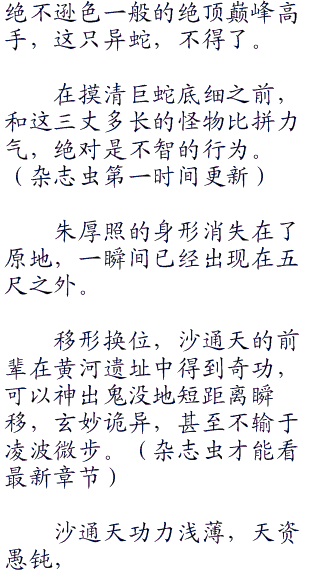 绝不逊色一般的绝顶巅峰高
手，这只异蛇，不得了。
在摸清巨蛇底细之前，
和这三丈多长的怪物比拼力
气，绝对是不智的行为。
（杂志虫第一时间更新）
朱厚照的身形消失在了
原地，一瞬间已经出现在五
尺之外。
移形换位，沙通天的前
辈在黄河遗址中得到奇功，
可以神出鬼没地短距离瞬
移，玄妙诡异，甚至不输于
凌波微步。（杂志虫才能看
最新章节）
沙通天功力浅薄，天资
愚钝，